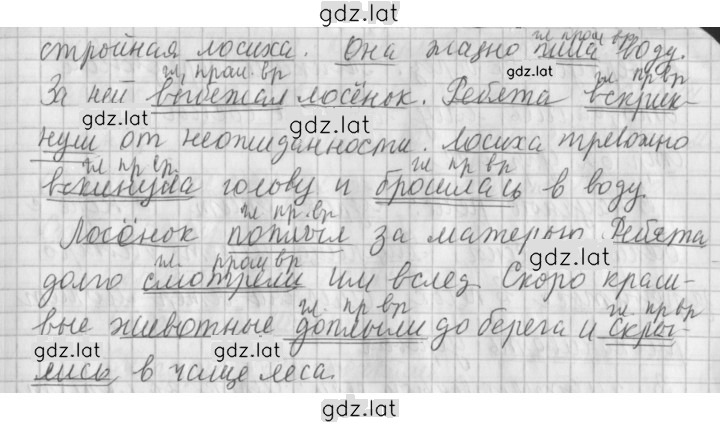 gdz.lat
стройная лосиха. Она жадно пила воду.
гл. прош. вр
гл. прош. вр
gdz.lat
гл. пр вр
За ней выбежал лосёнок. Ребята вскрик-
gdz.lat
gdz.lat
нули от неожиданности. Лосиха тревожно
гл пр вр
гл пр вр
вскинула голову и бросилась в воду.
гл пр. вр
Лосёнок поплыл за матерью. Ребята
gdz.lat
gdz.lat
гл. прош вр
долго смотрели им вслед. Скоро краси-
гл. пр вр
гл. пр вр
вые животные доплыли до берега и скры-
gdz.lat
gdz.lat
лись в чаще леса.
gdz.lat